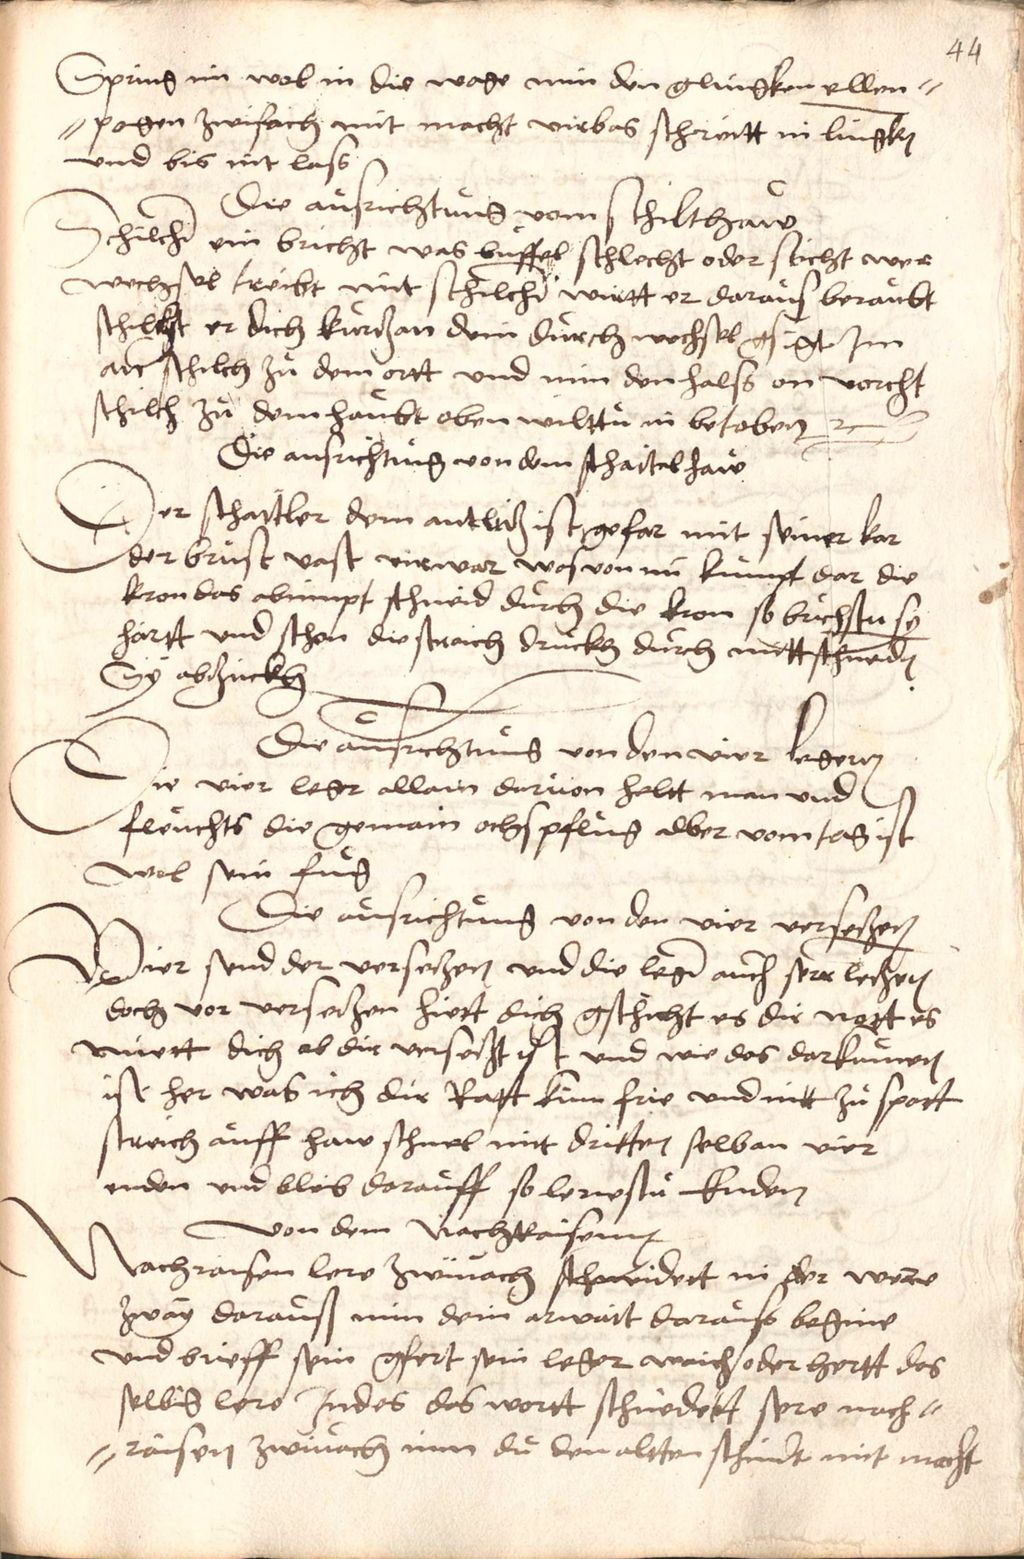 44
Spring im wol in die wage nim den glingken ellen=
=pogen zwifach mit macht virbas schreitt in lingken
und bis nit lass
Die ausrichtung vom schilthaw
Schilcher ein bricht was buffel schlecht oder sticht wer
wechsel treibt mit schilcher wirtt er daraus beraubt
schilcht er dich kurtz an dem durch wechsel gsigt Im
an schilch zu dem ortt und nim den halss on vorcht
schilch zu dem haubt oben wilttu in betoben
Die ausrichtung von dem schaitelhaw
Der schaittler dem antlitz ist gefar mit seiner kar
der brust vast virwar was von im kumpt dar die
kron das abnimpt schneid durch die kron so brichstu sy
hartt und schon die straich druckh durch mitt schneiden
Sy abzuckh
Die ausrichtung von den vier legern
Die vier leger allain darvon heltt man und
fleuchts die gemain ochs pflug alber vom tag ist
wol sein fug
Die ausrichtung von den vier versetzen
Vier send der versetzen und die leger auch serr letzen
doch vor versetzen hiett dich gschicht es dir nott es
miett dich ob dir versetzt ist und wie das darkumen
ist her was ich dir Ratt kum frie und nitt zu spatt
straich auff haw schnel mit dritten selb an vier
enden und bleib darauff so lernestu enden
Von dem Nachraisenn
Nachraisen lere zwivach schneidett in der were
zway darauss nim dein arwait darauss begine
und brieff sein gfert sein leger waich oder hertt das
selbig lere Indes das wortt schneidett sere nach=
=raisen zwivach nim du den altten schnidt mit macht